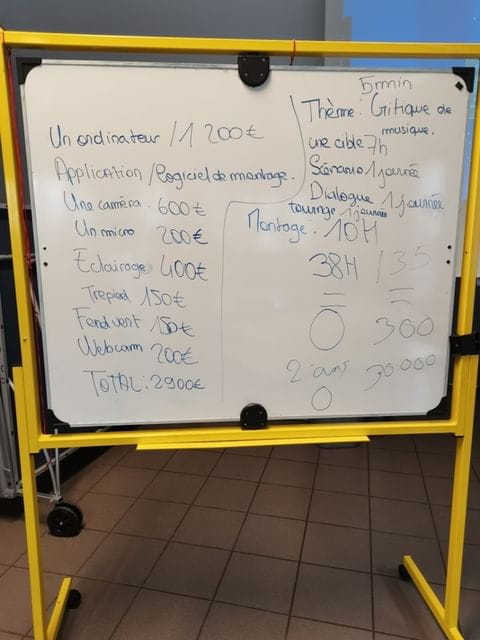 Un ordinateur /1 200€
Application /Logiciel de montage.
Une caméra 600€
Un micro 200€
Eclairage 400€
Trepied 150€
Fond vert 150€
Webcam 200€
TOTAL: 2900€
5min
Thème: Critique de
musique.
une cible 7h
Scénario 1 journée
Dialogue 1 journée
tournage 1 journée
Montage: 10H
38H / 35
0 300
2 ans 30 000
0